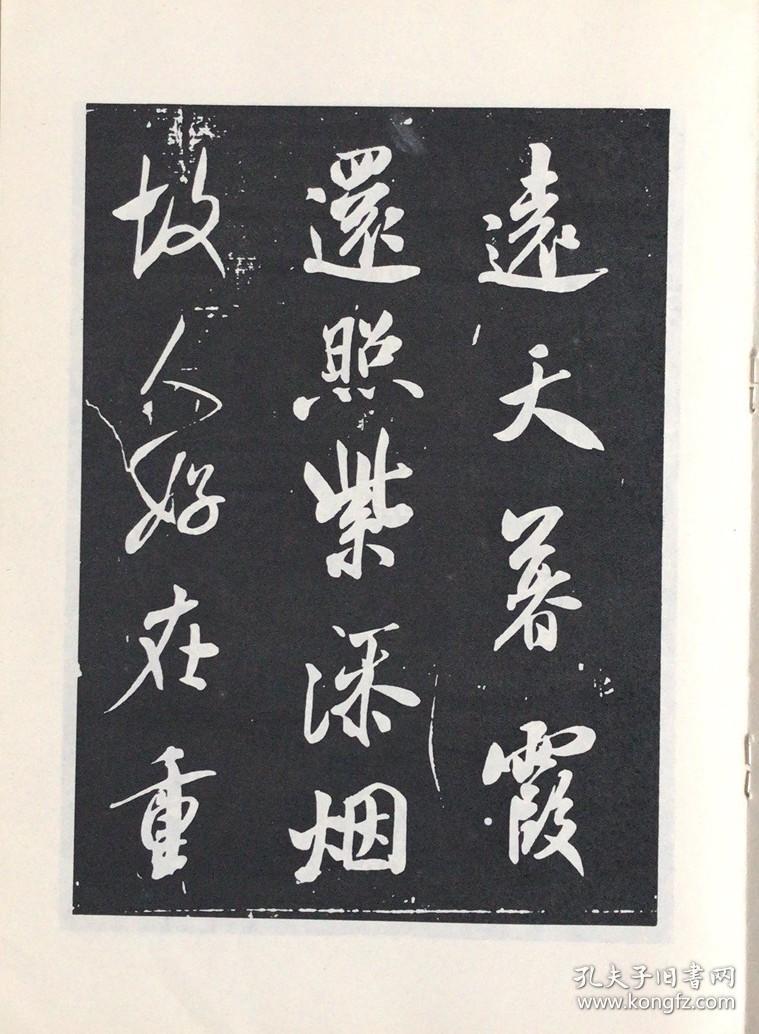 遠天暮霞
還照紫深烟
故人好在重
孔夫子旧书网
www.kongfz.com